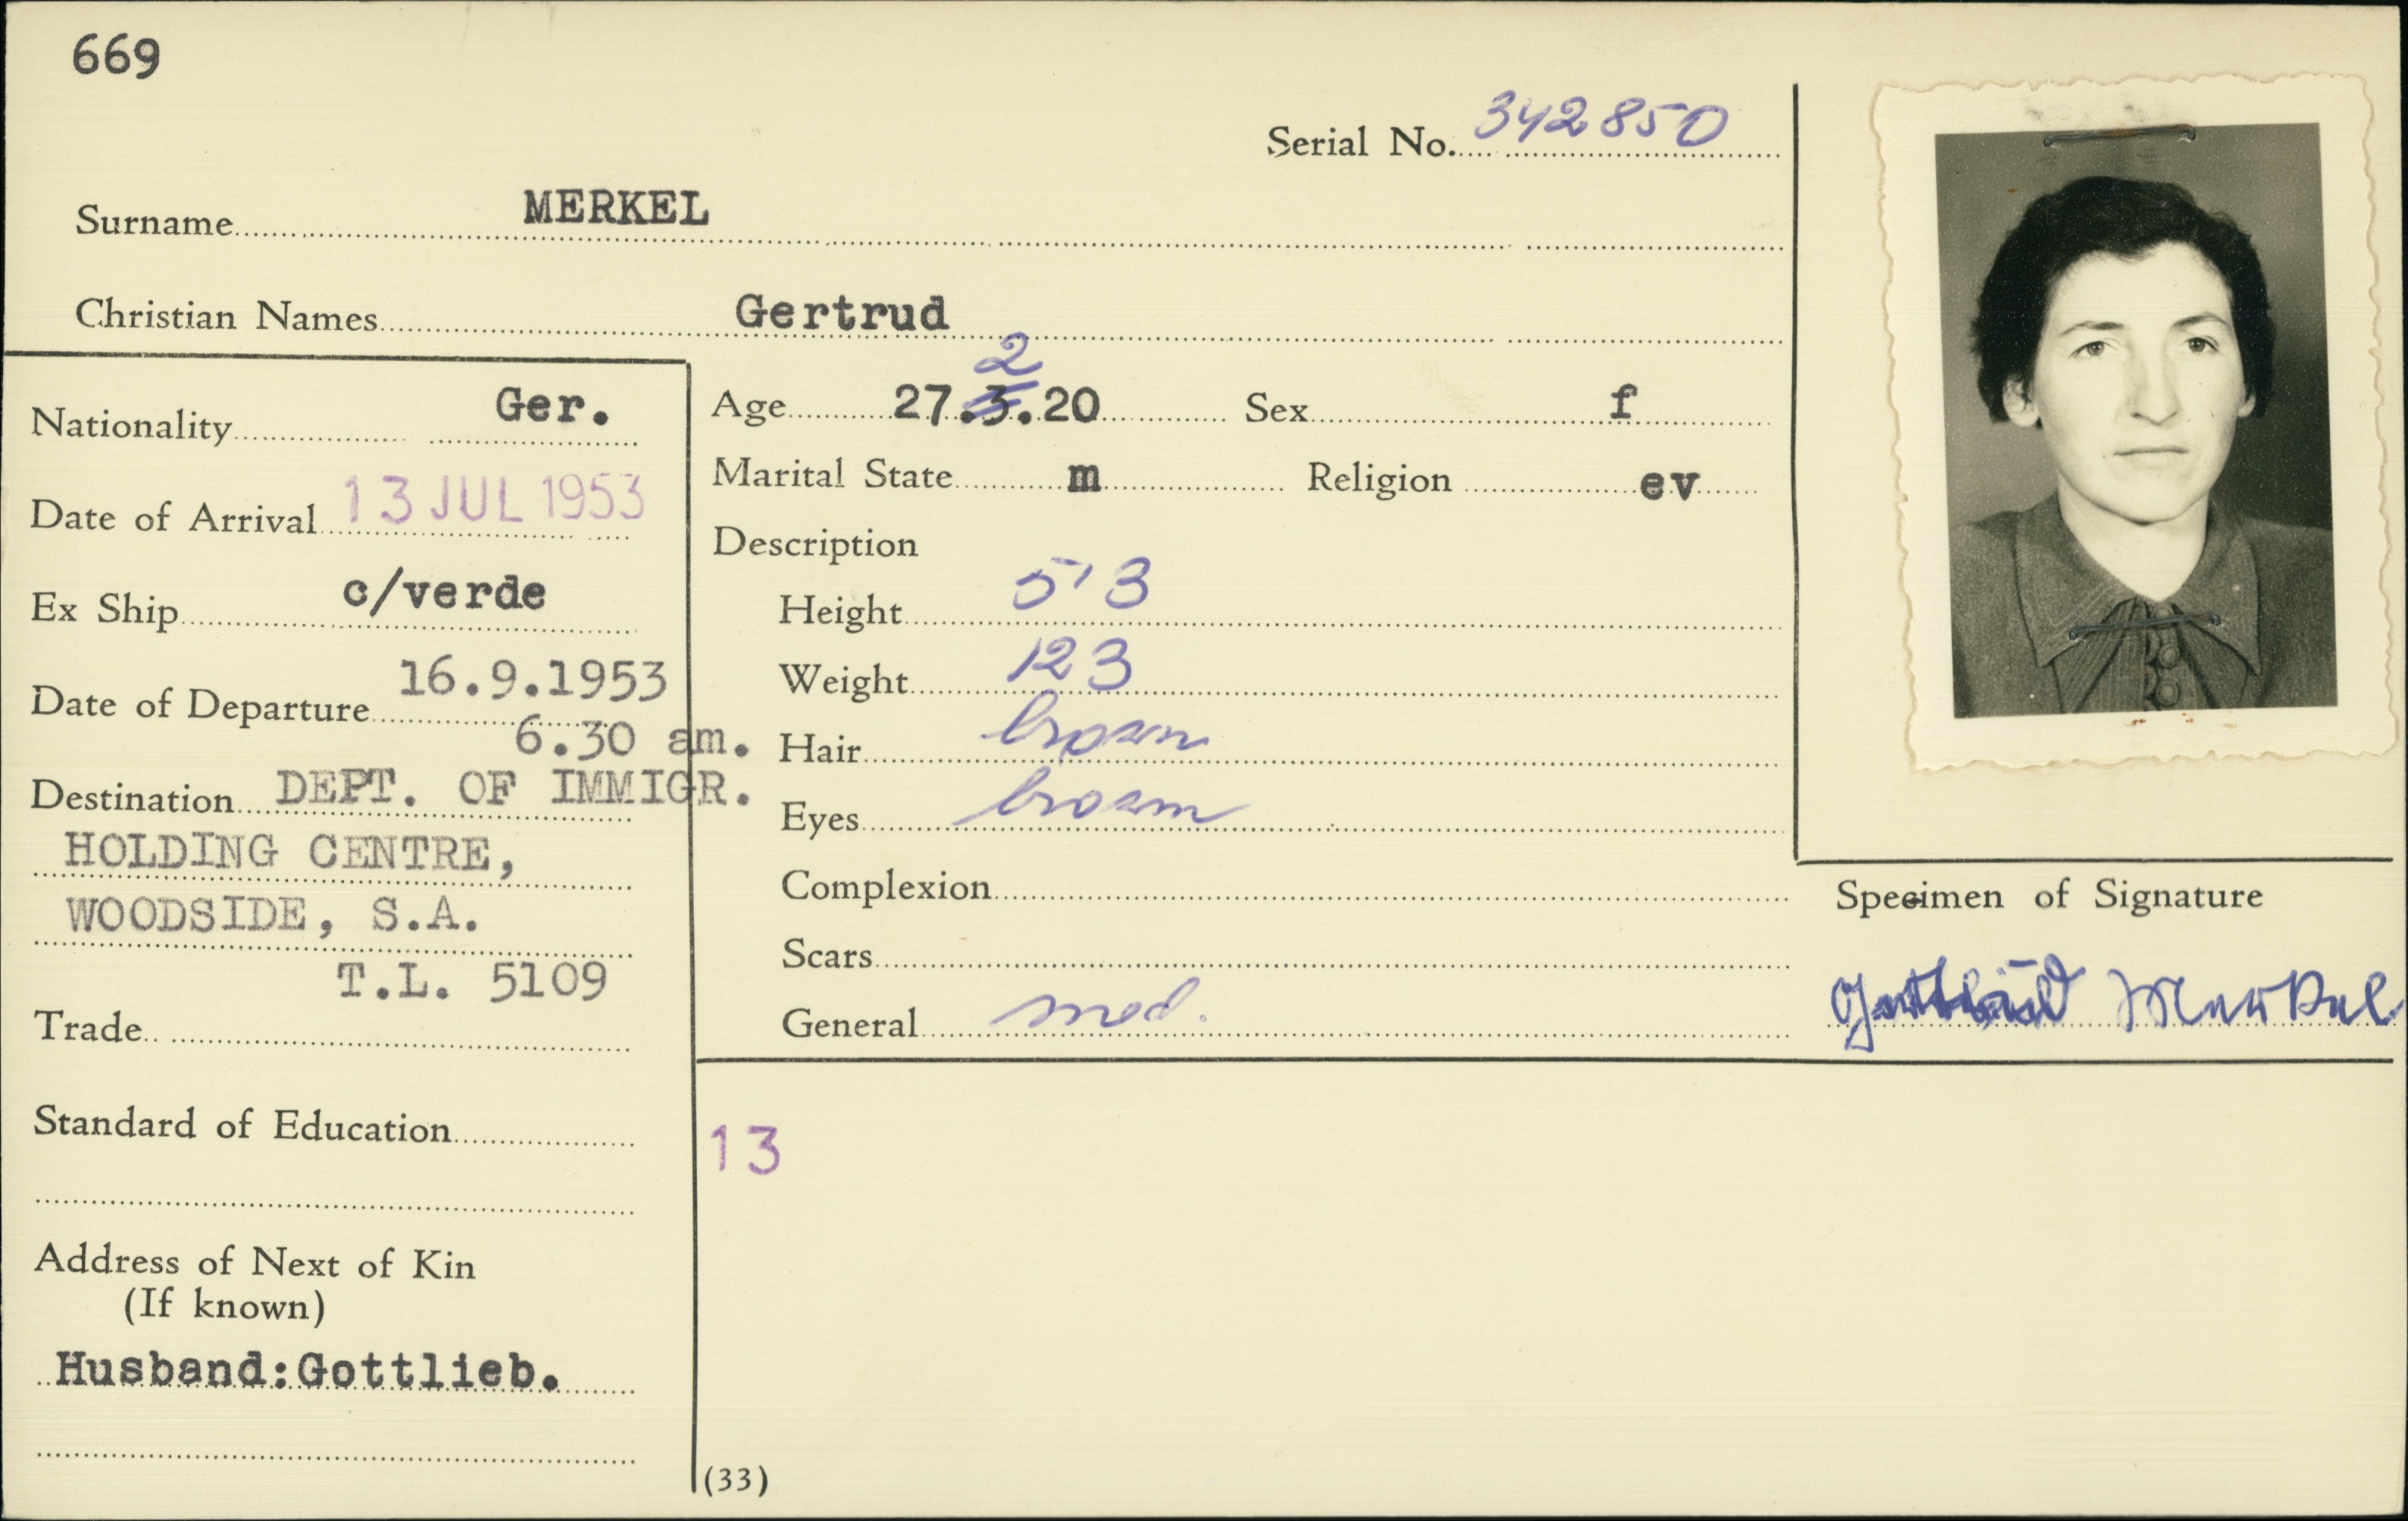 669
Serial No. 342850
Surname MERKEL
Christian Names Gertrud
Nationality Ger.
Date of Arrival 13 JUL 1953
Ex Ship c/verde
Date of Departure 16.9.1953
6.30 am.
Destination DEPT. OF IMMIGR.
HOLDING CENTRE,
WOODSIDE, S.A.
T.L. 5109
Trade
Standard of Education
Address of Next of Kin
(If known)
Husband:Gottlieb.
2
Age 27.3.20 Sex f
Marital State m Religion ev
Description
Height 5'3
Weight 123
Hair brown
Eyes brown
Complexion
Scars
General med.
Specimen of Signature
Merkel
13
(33)